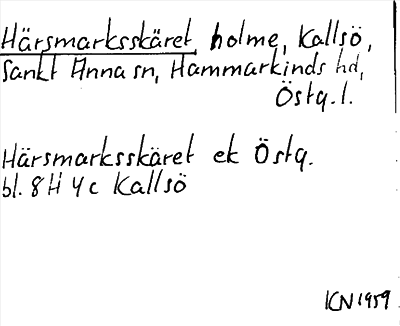 Härsmarksskäret, holme, Kallsö,
Sankt Anna sn, Hammarkinds hd,
Östg.l.
Härsmarksskäret ek Östg.
bl. 8 H 4 c Kallsö
KN 1959